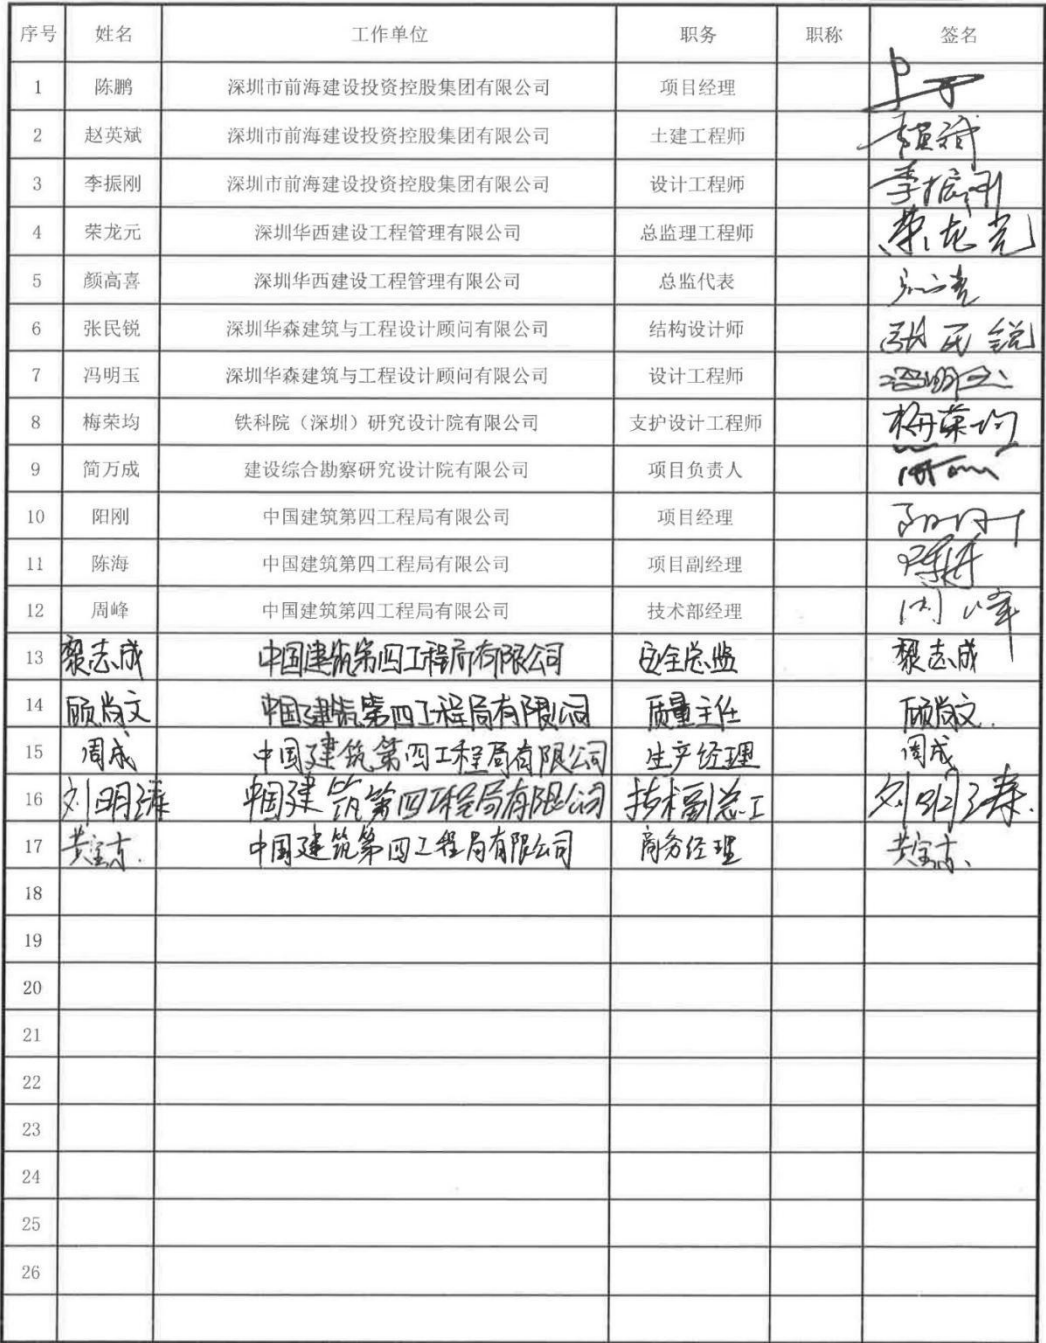 序号 姓名 工作单位 职务 职称 签名
1 陈鹏 深圳市前海建设投资控股集团有限公司 项目经理
2 赵英斌 深圳市前海建设投资控股集团有限公司 土建工程师
3 李振刚 深圳市前海建设投资控股集团有限公司 设计工程师 李振刚
4 荣龙元 深圳华西建设工程管理有限公司 总监理工程师
5 颜高喜 深圳华西建设工程管理有限公司 总监代表
6 张民锐 深圳华森建筑与工程设计顾问有限公司 结构设计师 张民锐
7 冯明玉 深圳华森建筑与工程设计顾问有限公司 设计工程师 冯明玉
8 梅荣均 铁科院（深圳）研究设计院有限公司 支护设计工程师 梅荣均
9 简万成 建设综合勘察研究设计院有限公司 项目负责人
10 阳刚 中国建筑第四工程局有限公司 项目经理
11 陈海 中国建筑第四工程局有限公司 项目副经理
12 周峰 中国建筑第四工程局有限公司 技术部经理 周峰
13 黎志成 中国建筑第四工程局有限公司 安全总监 黎志成
14 顾尚文 中国建筑第四工程局有限公司 质量主任 顾尚文
15 周成 中国建筑第四工程局有限公司 生产经理 周成
16 中国建筑第四工程局有限公司 技术副总工
17 中国建筑第四工程局有限公司 商务经理
18
19
20
21
22
23
24
25
26